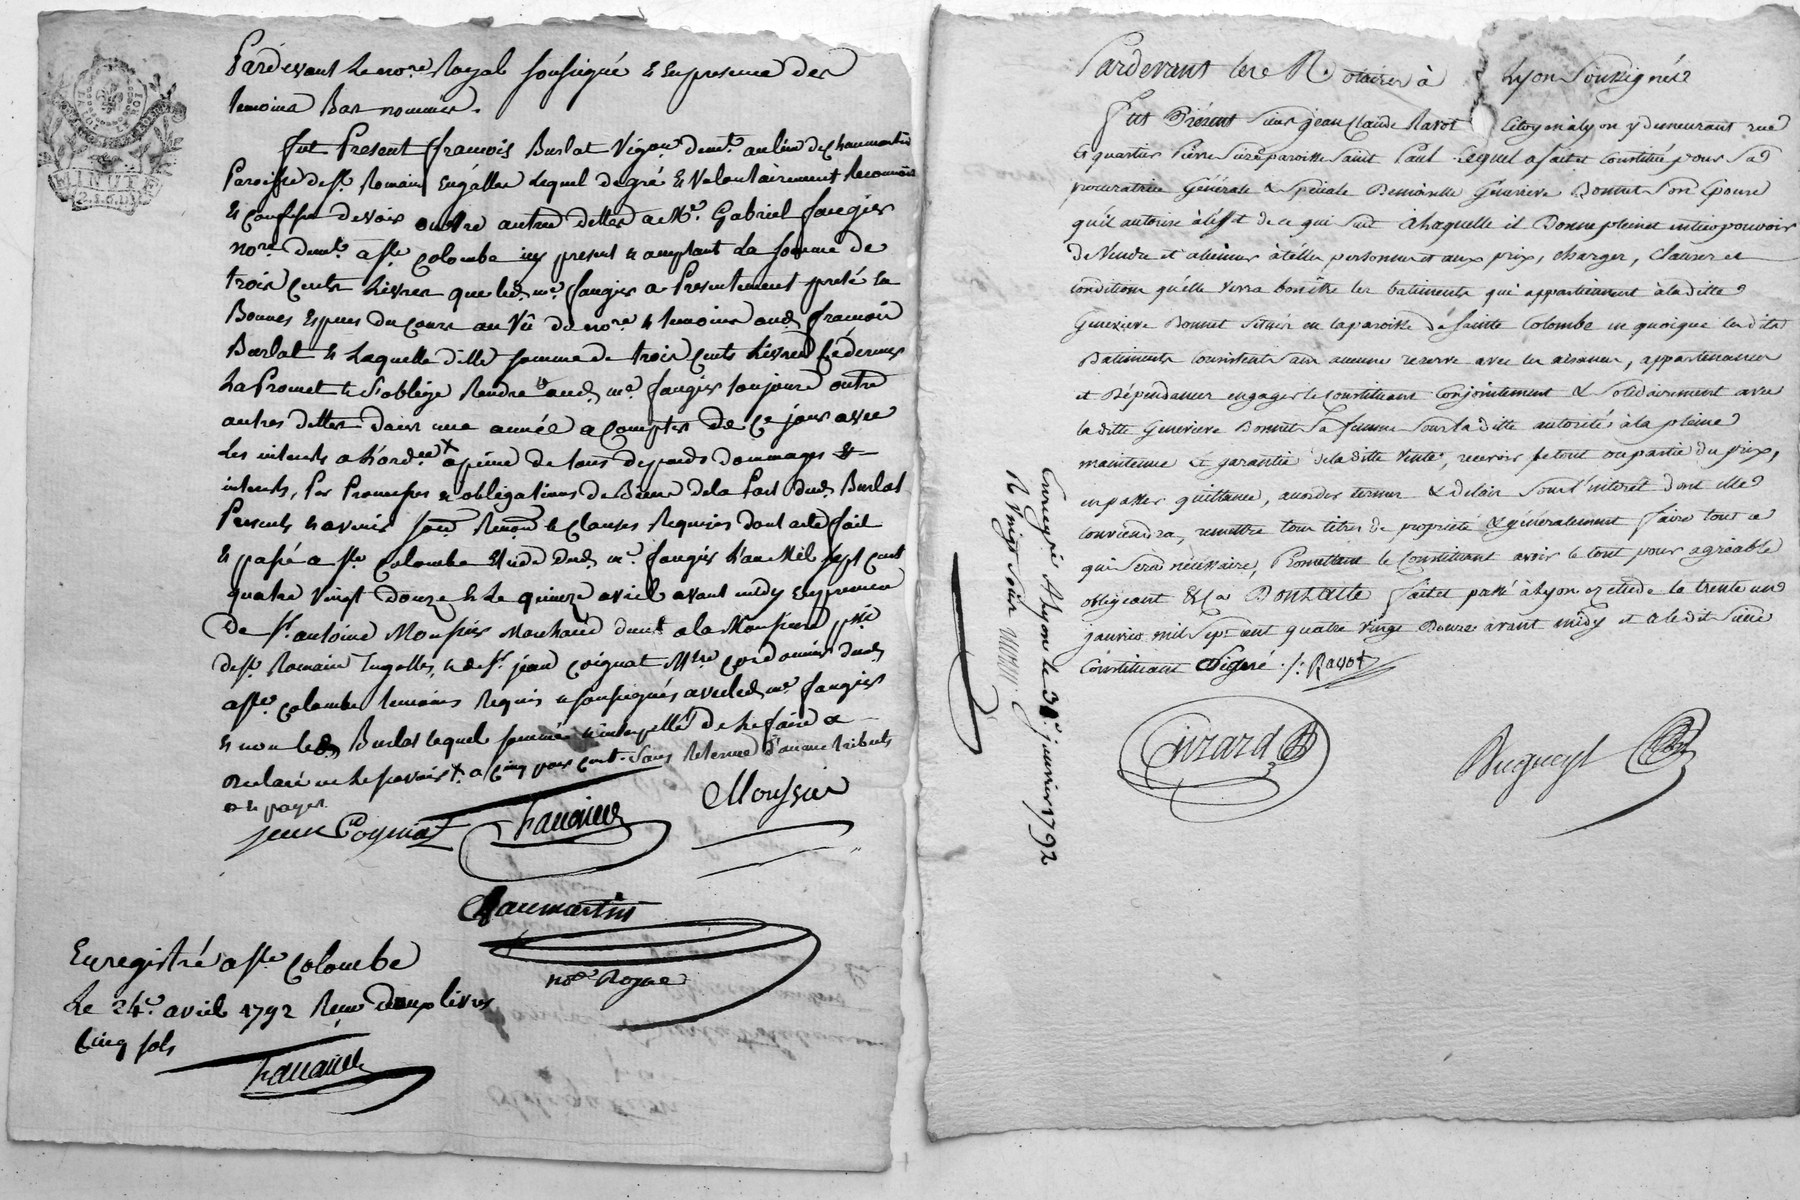 MINUTE
2 S. 6 D.
Pardevant le nore. Royal soussigné & en presence des
temoins Bas nommés.
fut Present françois Burlat Vigon. demt. au lieu de chaumartin
Paroisse de st. Romain Engalles Lequel de gré & Volontairement Reconnois
& confesse devoir outre autres dettes a Me. Gabriel faugier
nore. demt. a ste. colombe icy present & acceptant La somme de
trois cents Livres que led. mr. faugier a Presentement preté en
Bonnes Especes du Cours au Vû du nore. & temoins aud. françois
Burlat & Laquelle ditte somme de trois Cents Livres Ce dernier
La Promet & s'oblige Rendre aud. mr. faugier toujours outre
autres dettes dans une année a Compter de Ce jour avec
Les interets a L'ord. x a peine de tous depends dommages &
interets, Par Promesses & obligations de Biens de la Part dud. Burlat
Presents & avenir soum. Renon. & Clauses Requises dont acte fait
& passé a ste Colombe Etude dud. mr. faugier L'an Mil sept cent
quatre Vingt douze & Le quinze avril avant midy En presence
de sr. antoine Moussier Marchand demt. a la Moussiere psse
de st. Romain Engalles, & de sr. jean Coignat Mtre Cordonnier demt.
a ste. colombe temoins Requis & soussignés avec led. mr. faugier
& non led. Burlat lequel sommé & interpellé de le faire a
declaré ne le savoir x. a Cinq pour cent sans Retenue d'aucuns tributs
& le payer
jean Coignat
Moussier
Chaumartin
nore Royal
Enregistré a ste Colombe
Le 24e. avril 1792 Reçu deux livres
Cinq sols
Pardevant les N. otaires à Lyon Soussignés
fut Présent sieur jean Claude Ravot Citoyen à lyon y demeurant rue
& quartier Pierre Scize paroisse Saint Paul Lequel a fait et constitué pour sa
procuratrice Générale & Spéciale Demoiselle Genevieve Bonnet Son Epouse
qu'il autorise à l'effet de ce qui suit à laquelle il Donne plein et entier pouvoir
de Vendre et aliéner à telles personnes et aux prix, charges, Clauses et
conditions qu'elle verra bon être les batiments qui appartiennent à la ditte
Genevieve Bonnet Situés en la paroisse de Sainte Colombe en quoique lesdits
Batiments consistent sans aucune reserve avec les aisances, appartenances
et Dépendances engager le Constituant Conjointement & solidairement avec
la ditte Genevieve Bonnet Sa femme sous la ditte autorité à la pleine
maintenue & garantie de la ditte Vente, recevoir le tout ou partie du prix,
en passer quittance, accorder termes & delais sous l'interet dont elle
conviendra, remettre tous titres de propriété & généralement faire tout ce
qui sera nécéssaire, Promettant le Constituant avoir le tout pour agréable
obligeant &Ca Dont Acte fait et passé à Lyon ez etude le trente un
janvier mil sept cent quatre vingt Douze avant midy et a ledit Sieur
Constituant Signé ./. Ravot
Girard
Enregré. A Lyon le 31e. janvier 1792
R. Vingt Sous